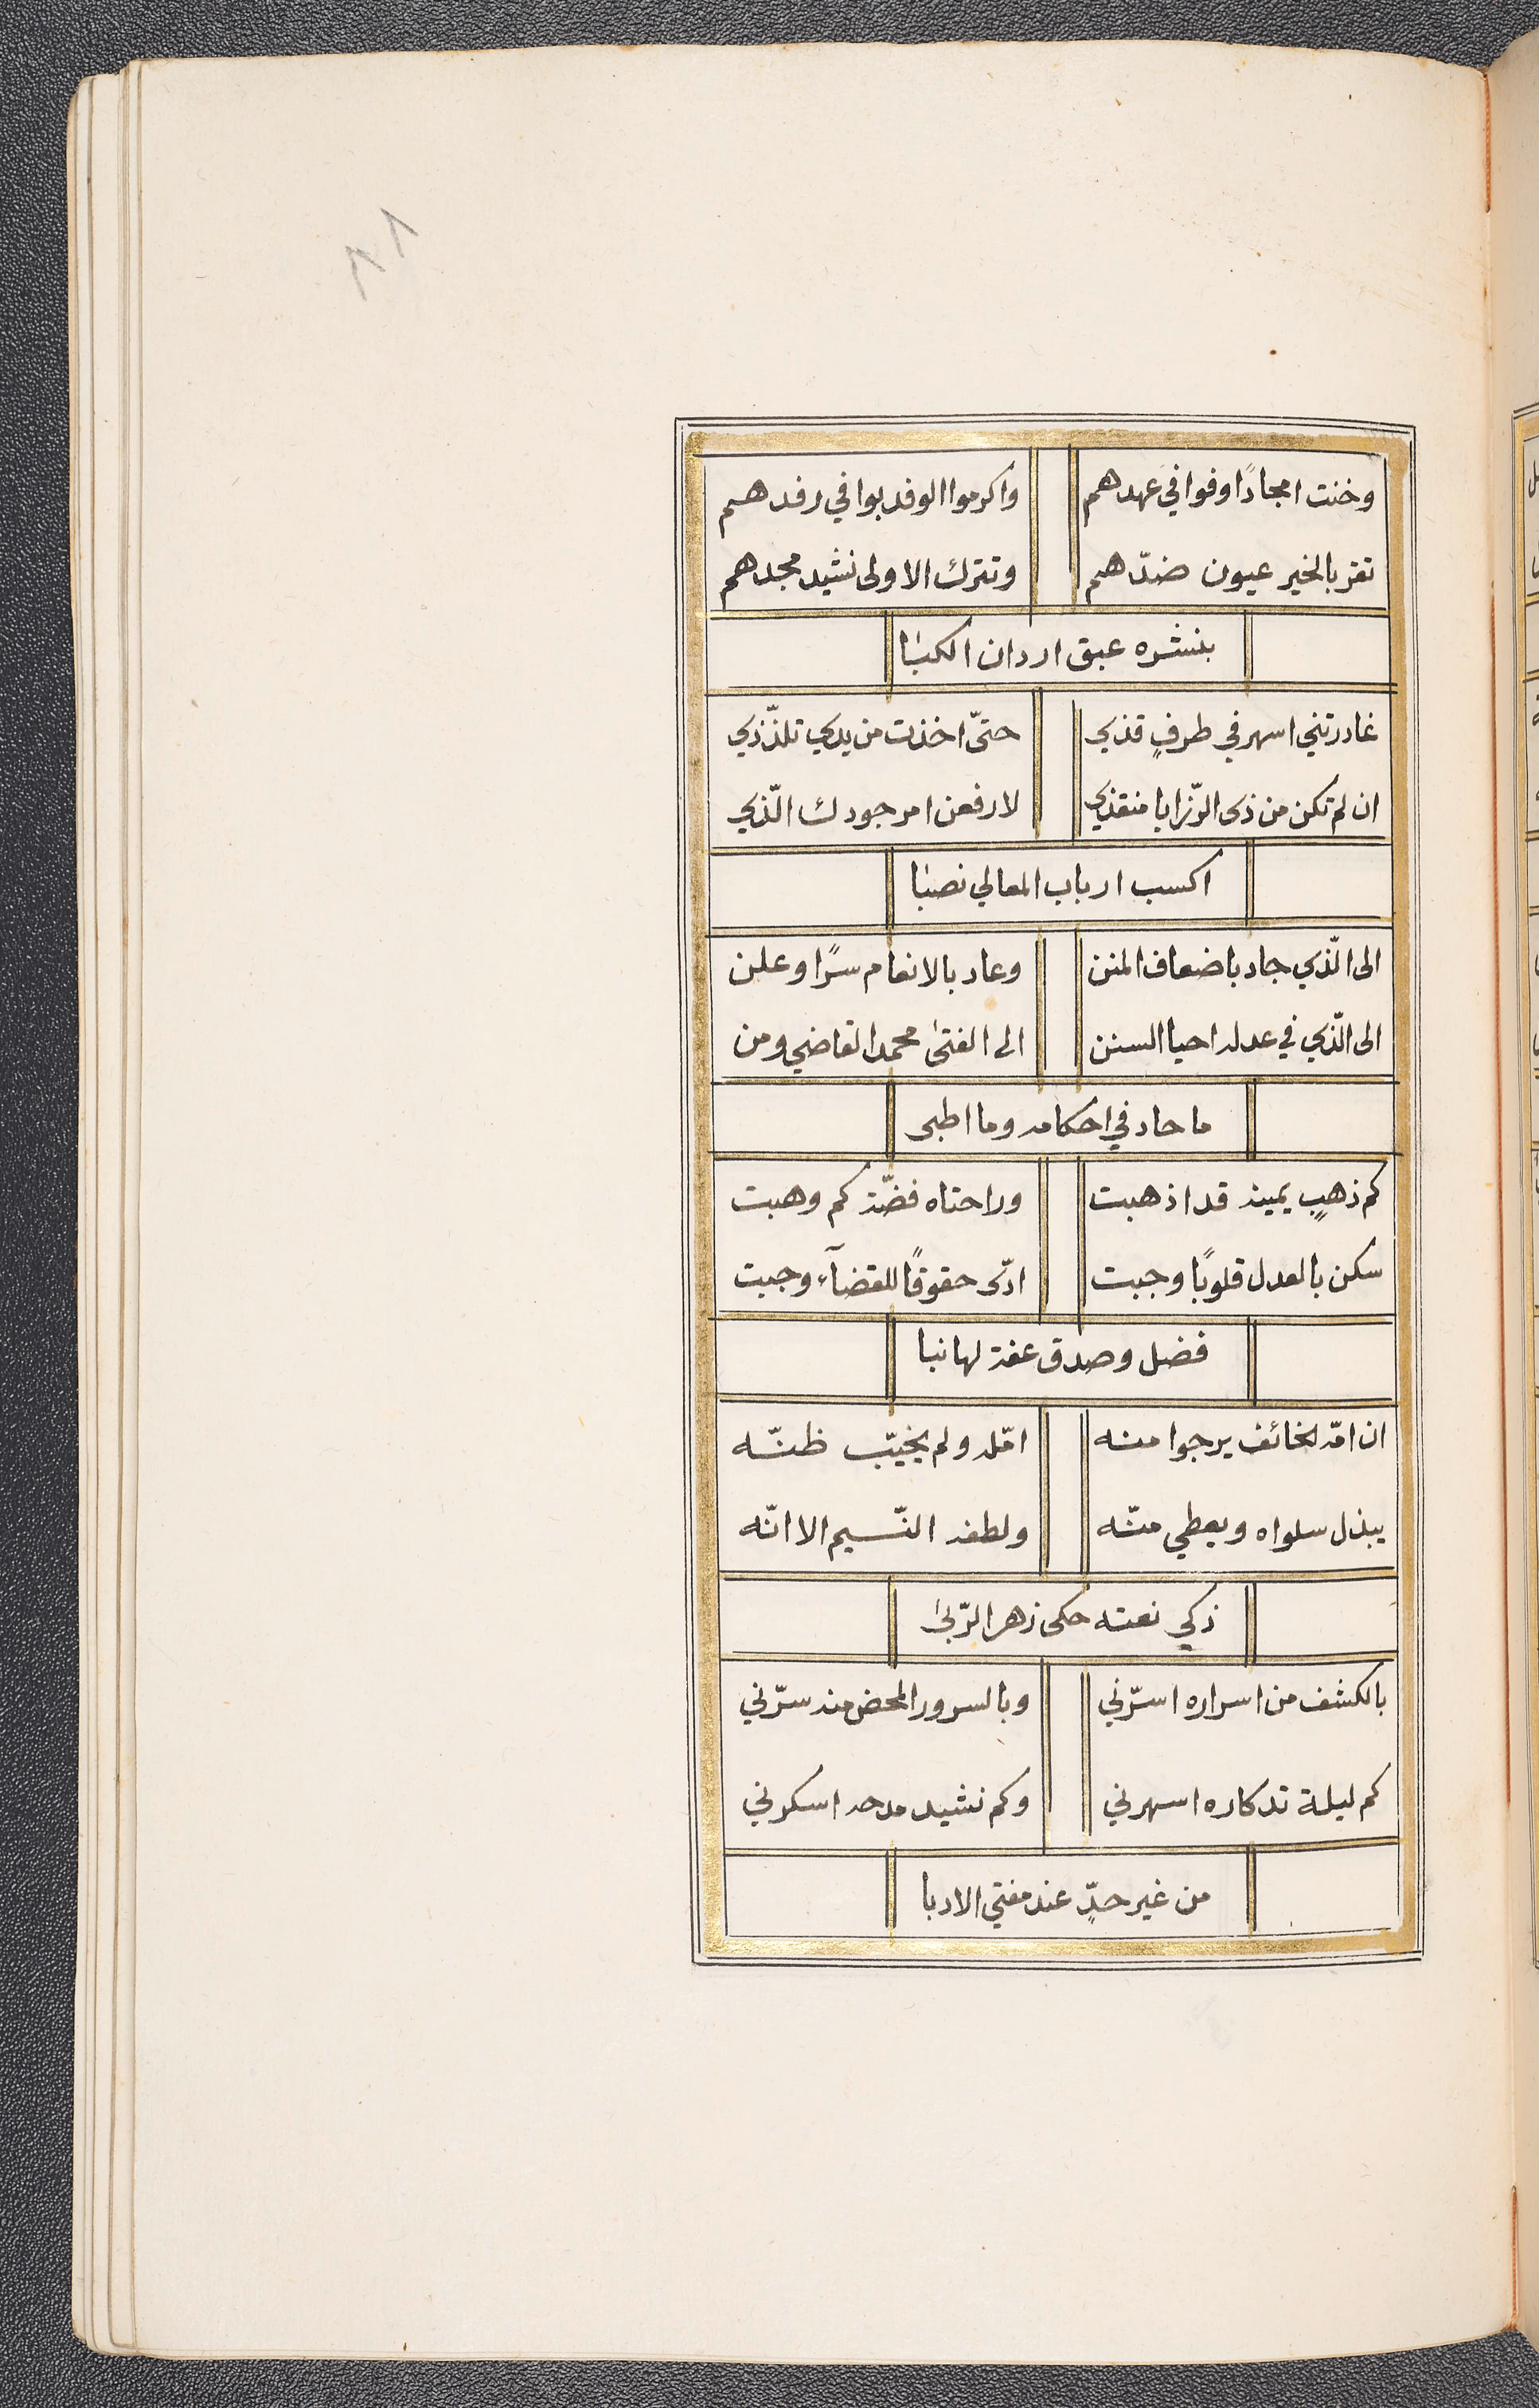 ٨٨
وخنت امجادًا وفوا في عهدهم واكرموا الوفد بوافي رفدهم
تقر بالخير عيون ضدّهم وتترك الاولى نشيد مجدهم
بنشره عبق اردان الكبا
غادرتني اسهر في طرفٍ قذي حتّى اخذت من يدي تلذّذي
ان لم تكن من ذى الرّزايا منقذي لارفعن امر جودك الّذي
اكسب ارباب المعالي نصبا
الى الّذي جاد باضعاف المنن وعاد بالانعام سرًا وعلن
الى الّذي في عدله احيا السنن الى الفتىٰ محمد القاضي ومن
ما حاد في احكامه وما اطبى
كم ذهبٍ يمينه قد اذهبت وراحتاه فضّة كم وهبت
سكن بالعدل قلوبًا وجبت ادّى حقوقًا للقضآء وجبت
فضل وصدق عفة لها نبا
ان امّه لخائف يرجوا منه امّله ولم يخيّب ظنّه
يبذل سلواه ويعطي منّه ولطفه النّسيم الا انّه
زكي نعته حكى زهر الرّبىٰ
بالكشف من اسراره اسرّني وبالسرور المحض منه سرّني
كم ليلة تدكاره اسهرني وكم نشيد مدحه اسكرني
من غير حدٍّ عند مفتي الادبا